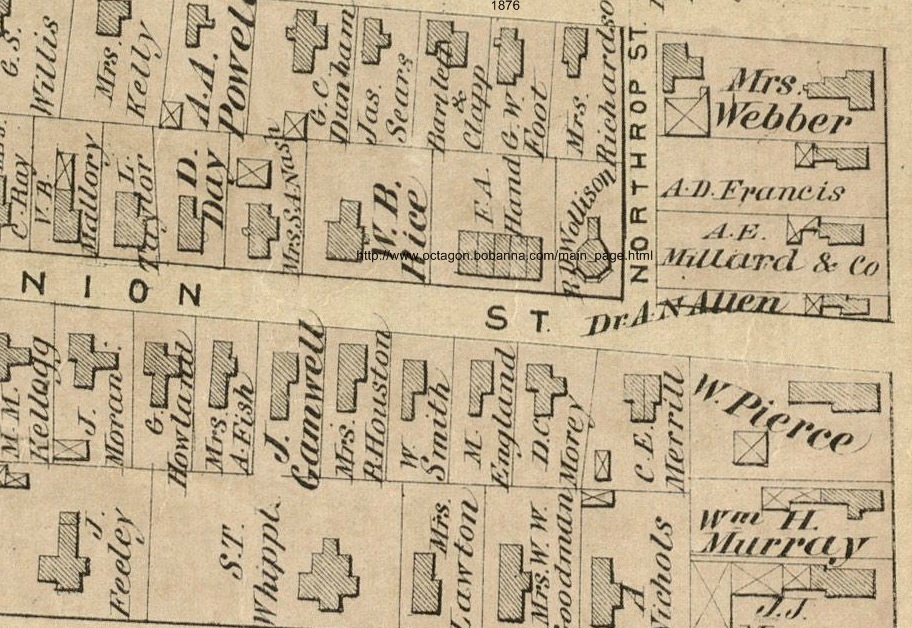 1876
G.S.
Willis
Mrs.
Kelly
A.A.
Powell
G.C.
Dunham
Jas.
Sears
Bartlett
&
Clapp
G.W.
Foot
Mrs.
Richardso
NORTHROP ST.
Mrs.
Webber
A.D. Francis
A.E.
Millard & Co
Dr. A.N Allen
C. Ray
V.B.
Mallory
L.
Taylor
D.
Day
Mrs. S.A. Nash
W.B.
Rice
F.A.
Hand
R.D. Wollison
http://www.octagon.bobanna.com/main_page.html
NION ST.
M.M.
Kellogg
J.
Moran.
G.
Howland
Mrs.
A. Fish
J.
Gamwell
Mrs.
P. Houston
W.
Smith
M.
England
D.C.
Morey
C.E.
Merrill
W. Pierce
J.
Feeley
S.T.
Whipple
Mrs.
Lawton
Mrs. W.W.
Goodman
A
Nichols
Wm H.
Murray
J.J.